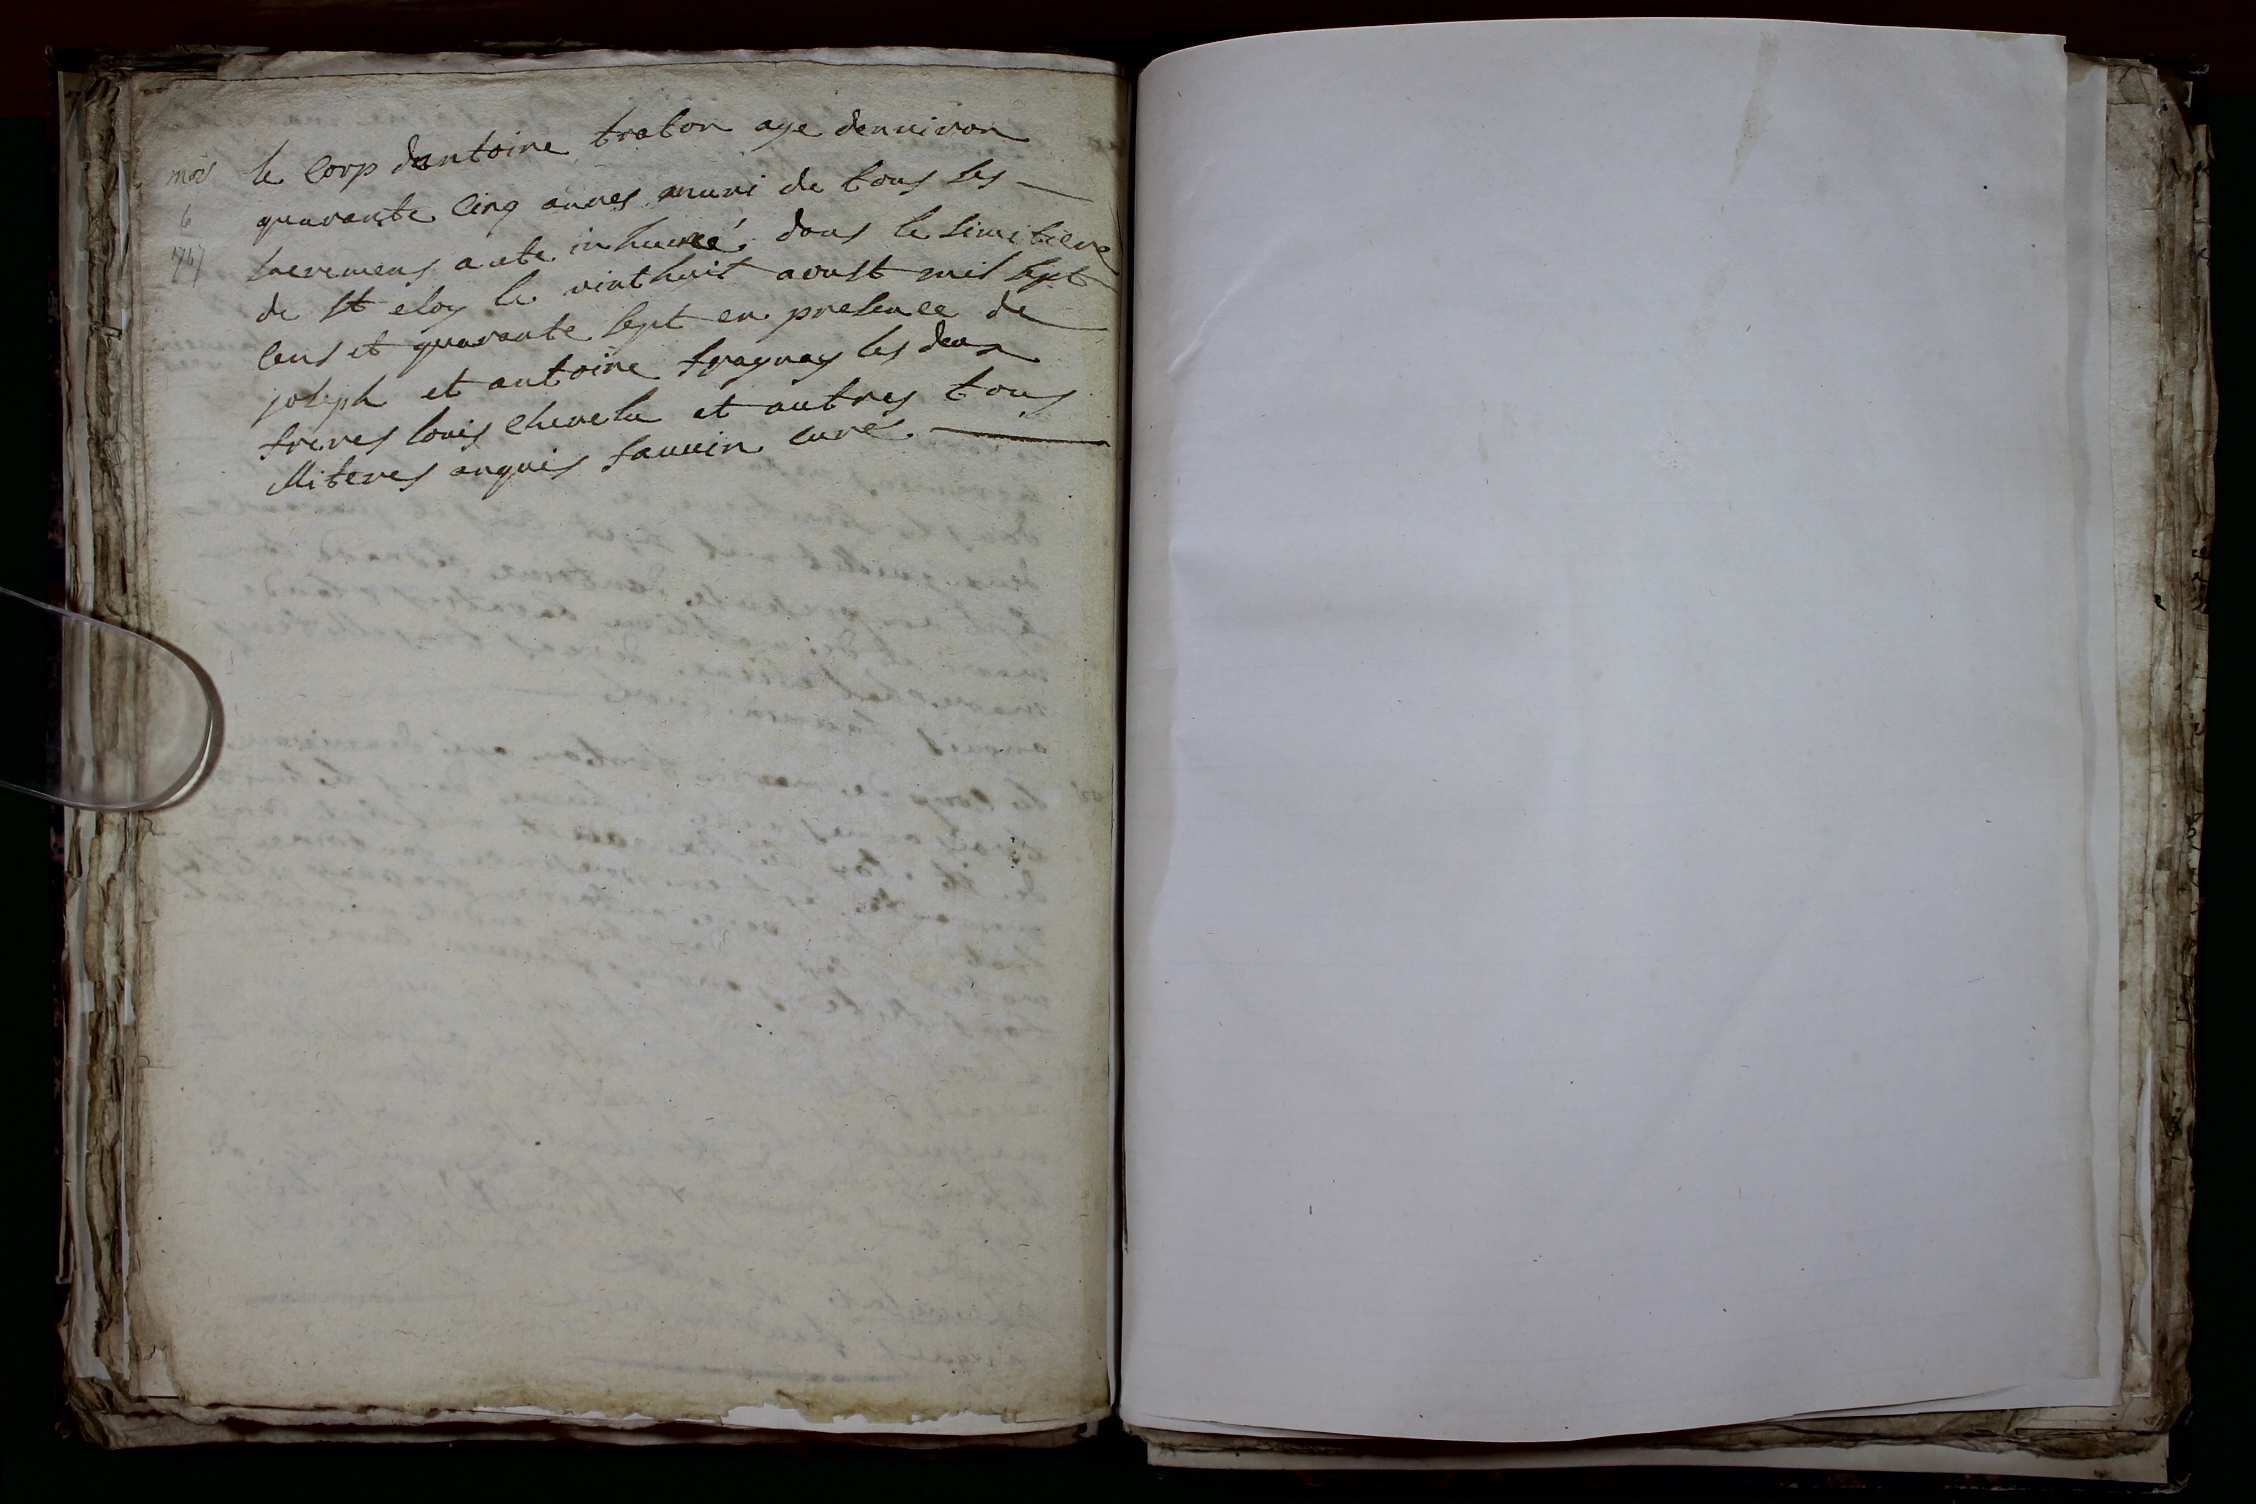 mort
6
1747
le Corp dantoine traton aye denuiron
quarante Cinq annes muni de tous les
sacremens a ete inhumé dans le simitiere
de st eloy le vinthuit aoust mil sept
cens et quarante sept en presence de
joseph et antoine fragnay les deux
freres louis Chevelu et autres tous
illiteres enquis fauvin curé